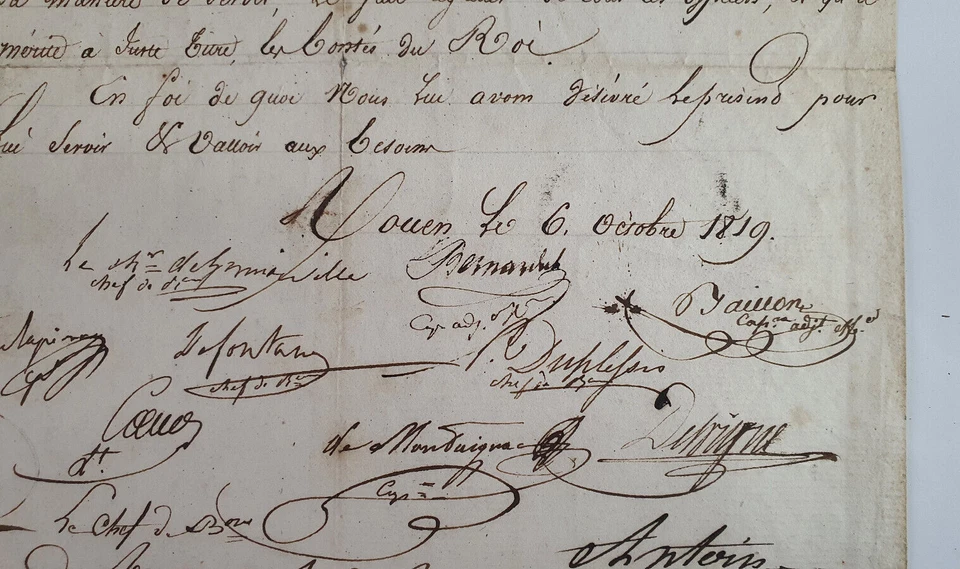 sa maniere de servir,
mérité a Juste titre, les bontés du Roi
En foi de quoi Nous lui avons délivré le présend pour
lui Servir & Valloir aux besoins
Rouen Le 6. Octobre 1819.
Le
chef de Bon
Bernardet
Capne adjt
Baillon
Capne adjt
Defontan
chef de Bon
Duplessis
chef de Bon
dt.
de Montaignac
Capne
Delvigne
Le Chef de Bon
Antoin